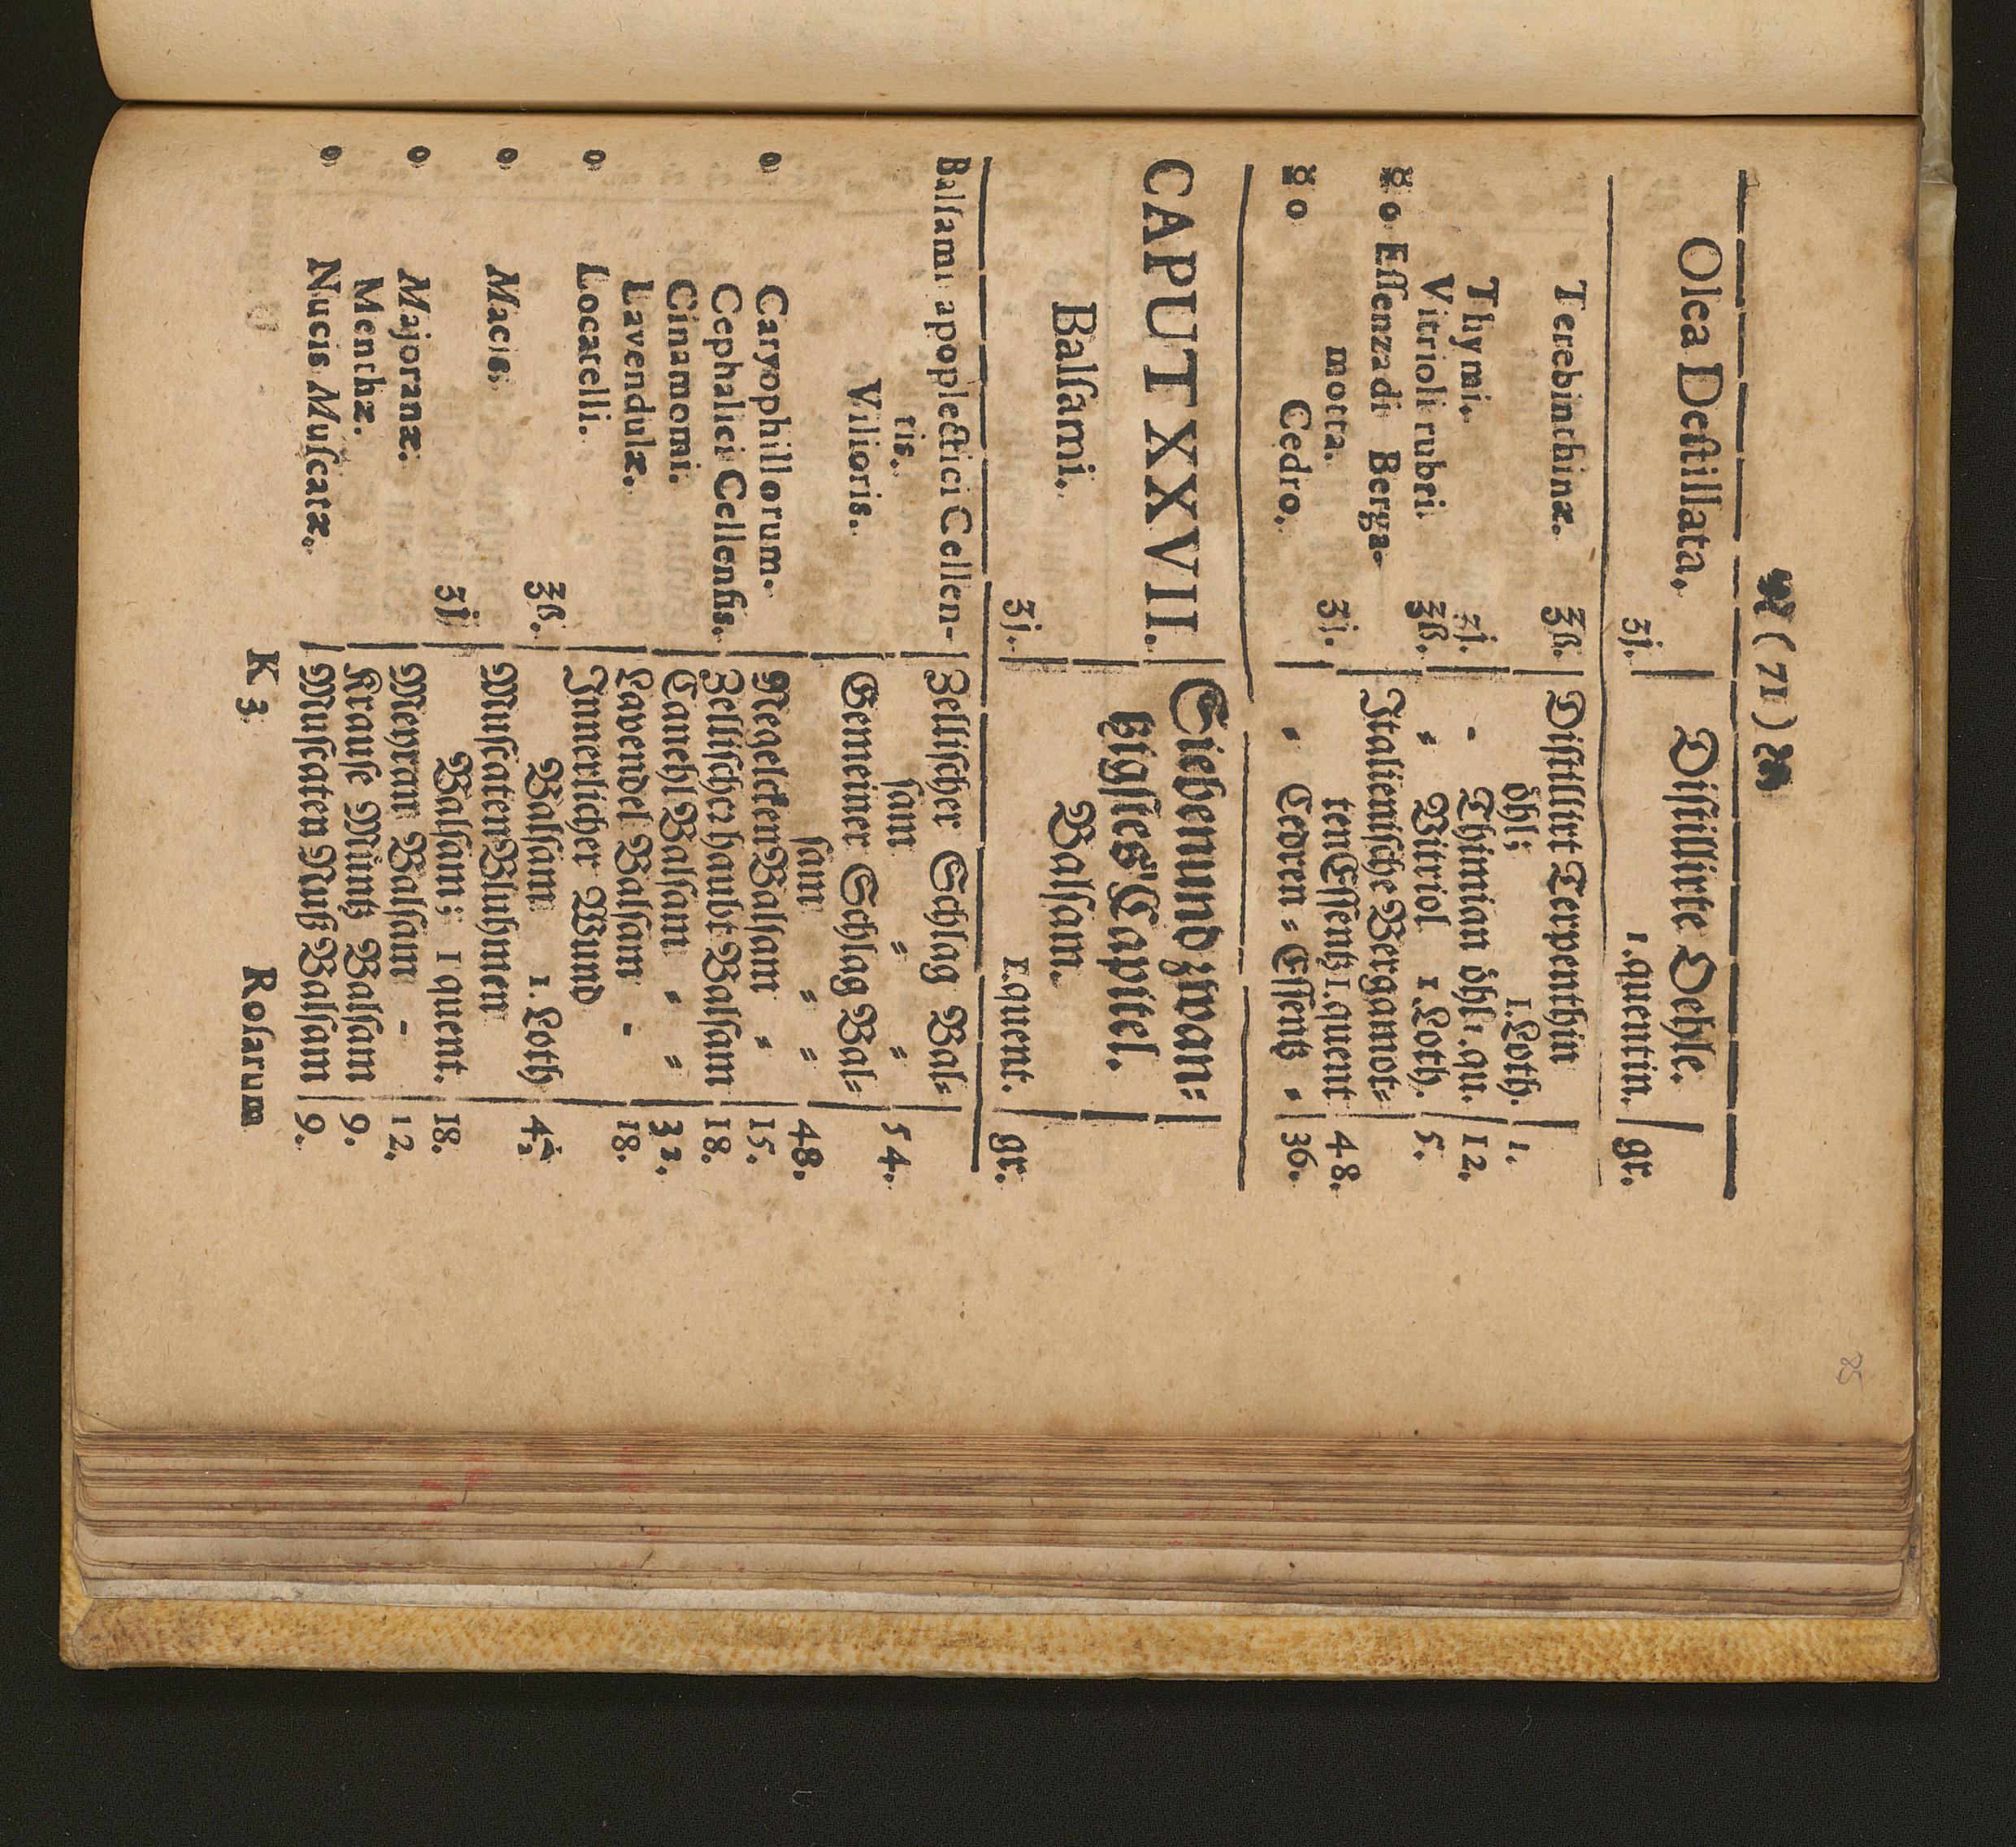 ( 71 )
Olea Deſtillata, Diſtillirte Oehle.
ʒj. 1. quentin. gr.
Terebinthinæ. ʒß. Diſtillirt Terpenthin
öhl; 1. Loth. 1.
Thymi. ʒj. - Thimian öhl 1. qu. 12.
Vitrioli rubei. ʒß. = Vitriol 1. Loth. 5.
o Eſſenza di Berga- Italieniſche Bergamot=
motta. ʒi. ten Eſſentz 1. quent 48.
o Cedro. = Cedren = Eſſentz = 36.
CAPUT XXVII. Siebenund zwan=
tzigſtes Capitel.
Balſami. Balſam.
ʒj. 1. quent. gr.
Balſami apoplectici Cellen- Zelliſcher Schlag Bal=
ris. ſam = = 54.
Vilioris. Gemeiner Schlag Bal=
ſam = = 48.
o Caryophillorum. Negelcken Balſam = 15.
Cephalici Cellenſis. Zelliſcher haubt Balſam 18.
Cinamomi. Canehl Balſam = = 32.
Lavendulæ. Lavendel Balſam - 18.
o Locatelli. Innerlicher Wund
ʒß. Balſam 1. Loth 4½
o Macis. Muſcaten Bluhmen
ʒj Balſam; 1 quent. 18.
o Majoranæ. Meyran Balſam - 12.
Menthæ. Krauſe Müntz Balſam 9.
o Nucis Muſcatæ. Muſcaten Nuß Balſam 9.
K 3 Roſarum
85